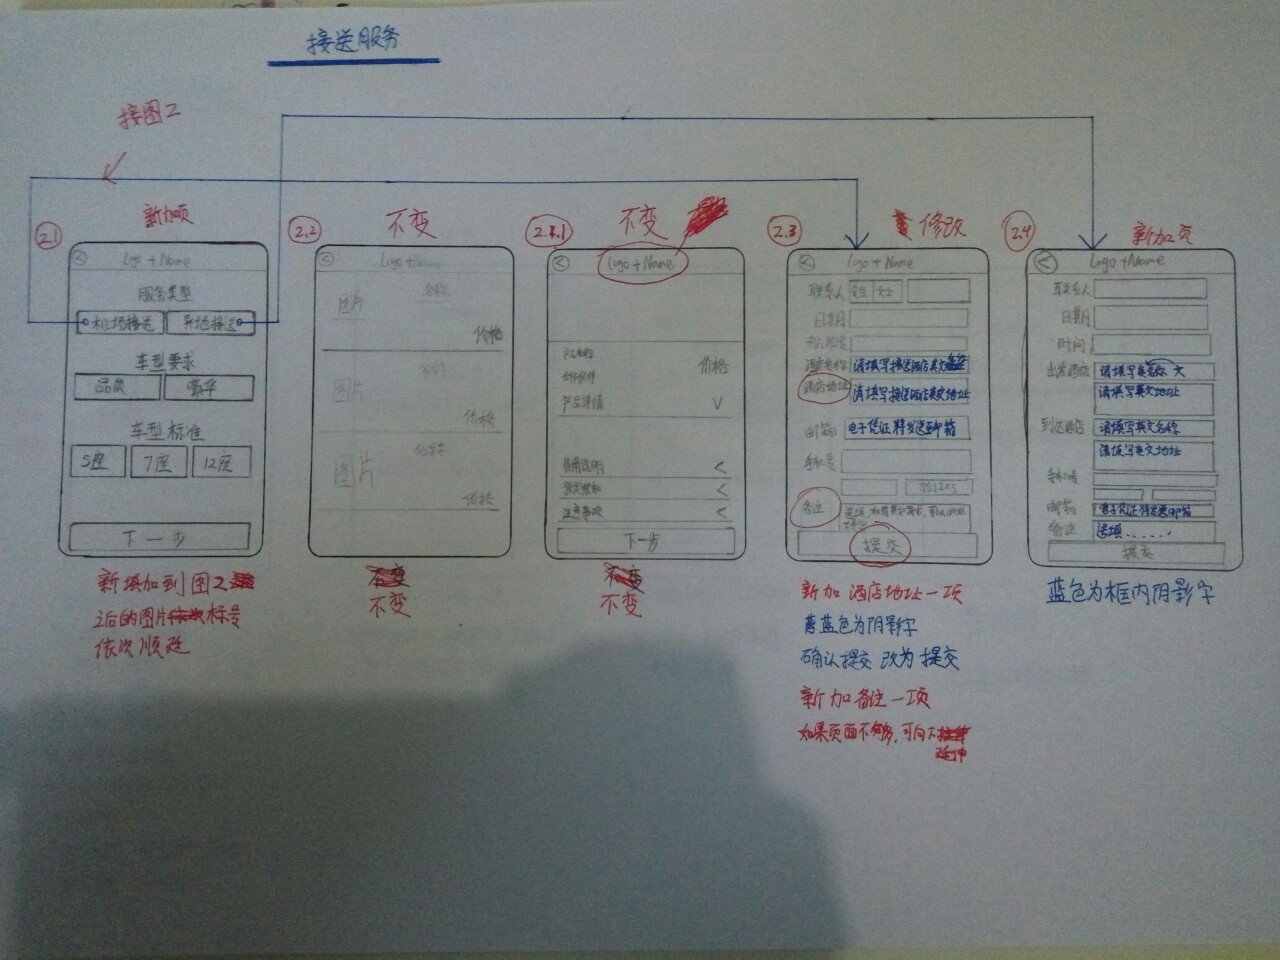 接送服务
接图2
2.1
新加页
Logo + Name
服务类型
机场接送
异地接送
车型要求
品质
豪华
车型标准
5座
7座
12座
下一步
新填加到图2
之后的图片标号
依次顺延
2.2
不变
Logo + Name
图片
名称
价格
图片
名称
价格
图片
名称
价格
不变
2.2.1
不变
Logo + Name
产品名称
价格
产品详情
费用说明
注意事项
下一步
不变
2.3
修改
Logo + Name
联系人
先生
女士
日期
酒店名称
请填写接送酒店英文名称
酒店地址
请填写接送酒店英文地址
邮箱
电子凭证将发送至邮箱
手机号
验证码
备注
提交
新加酒店地址一项
蓝色为阴影字
确认提交 改为 提交
新加备注一项
如果页面不够,可向下
延伸
2.4
新加页
Logo + Name
联系人
日期
时间
出发酒店
请填写英文名称
请填写英文地址
到达酒店
请填写英文名称
请填写英文地址
手机号
邮箱
电子凭证将发送邮箱
备注
选填......
提交
蓝色为框内阴影字